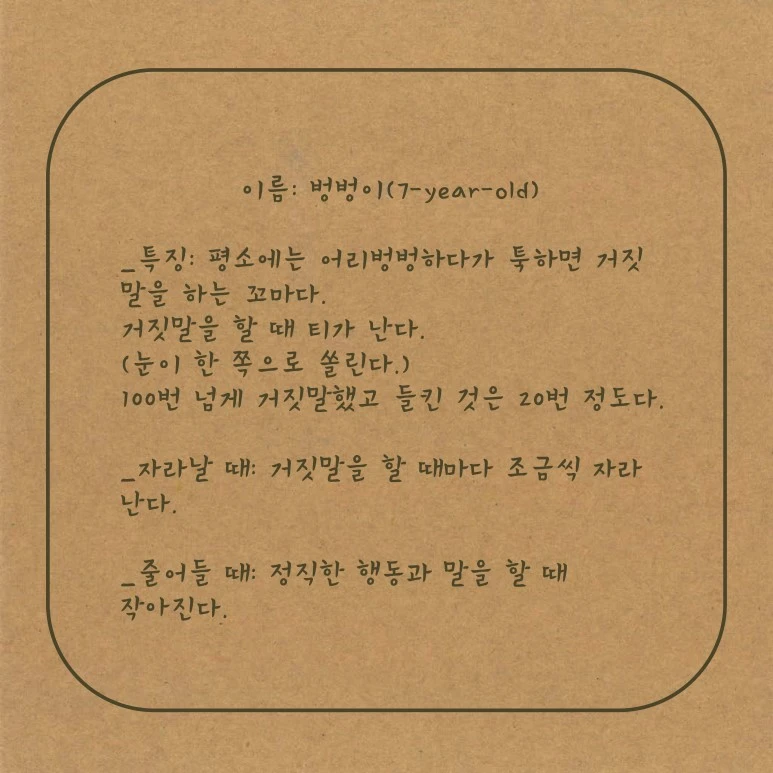 이름: 벙벙이(7-year-old)
_특징: 평소에는 어리벙벙하다가 툭하면 거짓
말을 하는 꼬마다.
거짓말을 할 때 티가 난다.
(눈이 한 쪽으로 쏠린다.)
100번 넘게 거짓말했고 들킨 것은 20번 정도다.
_자라날 때: 거짓말을 할 때마다 조금씩 자라
난다.
_줄어들 때: 정직한 행동과 말을 할 때
작아진다.